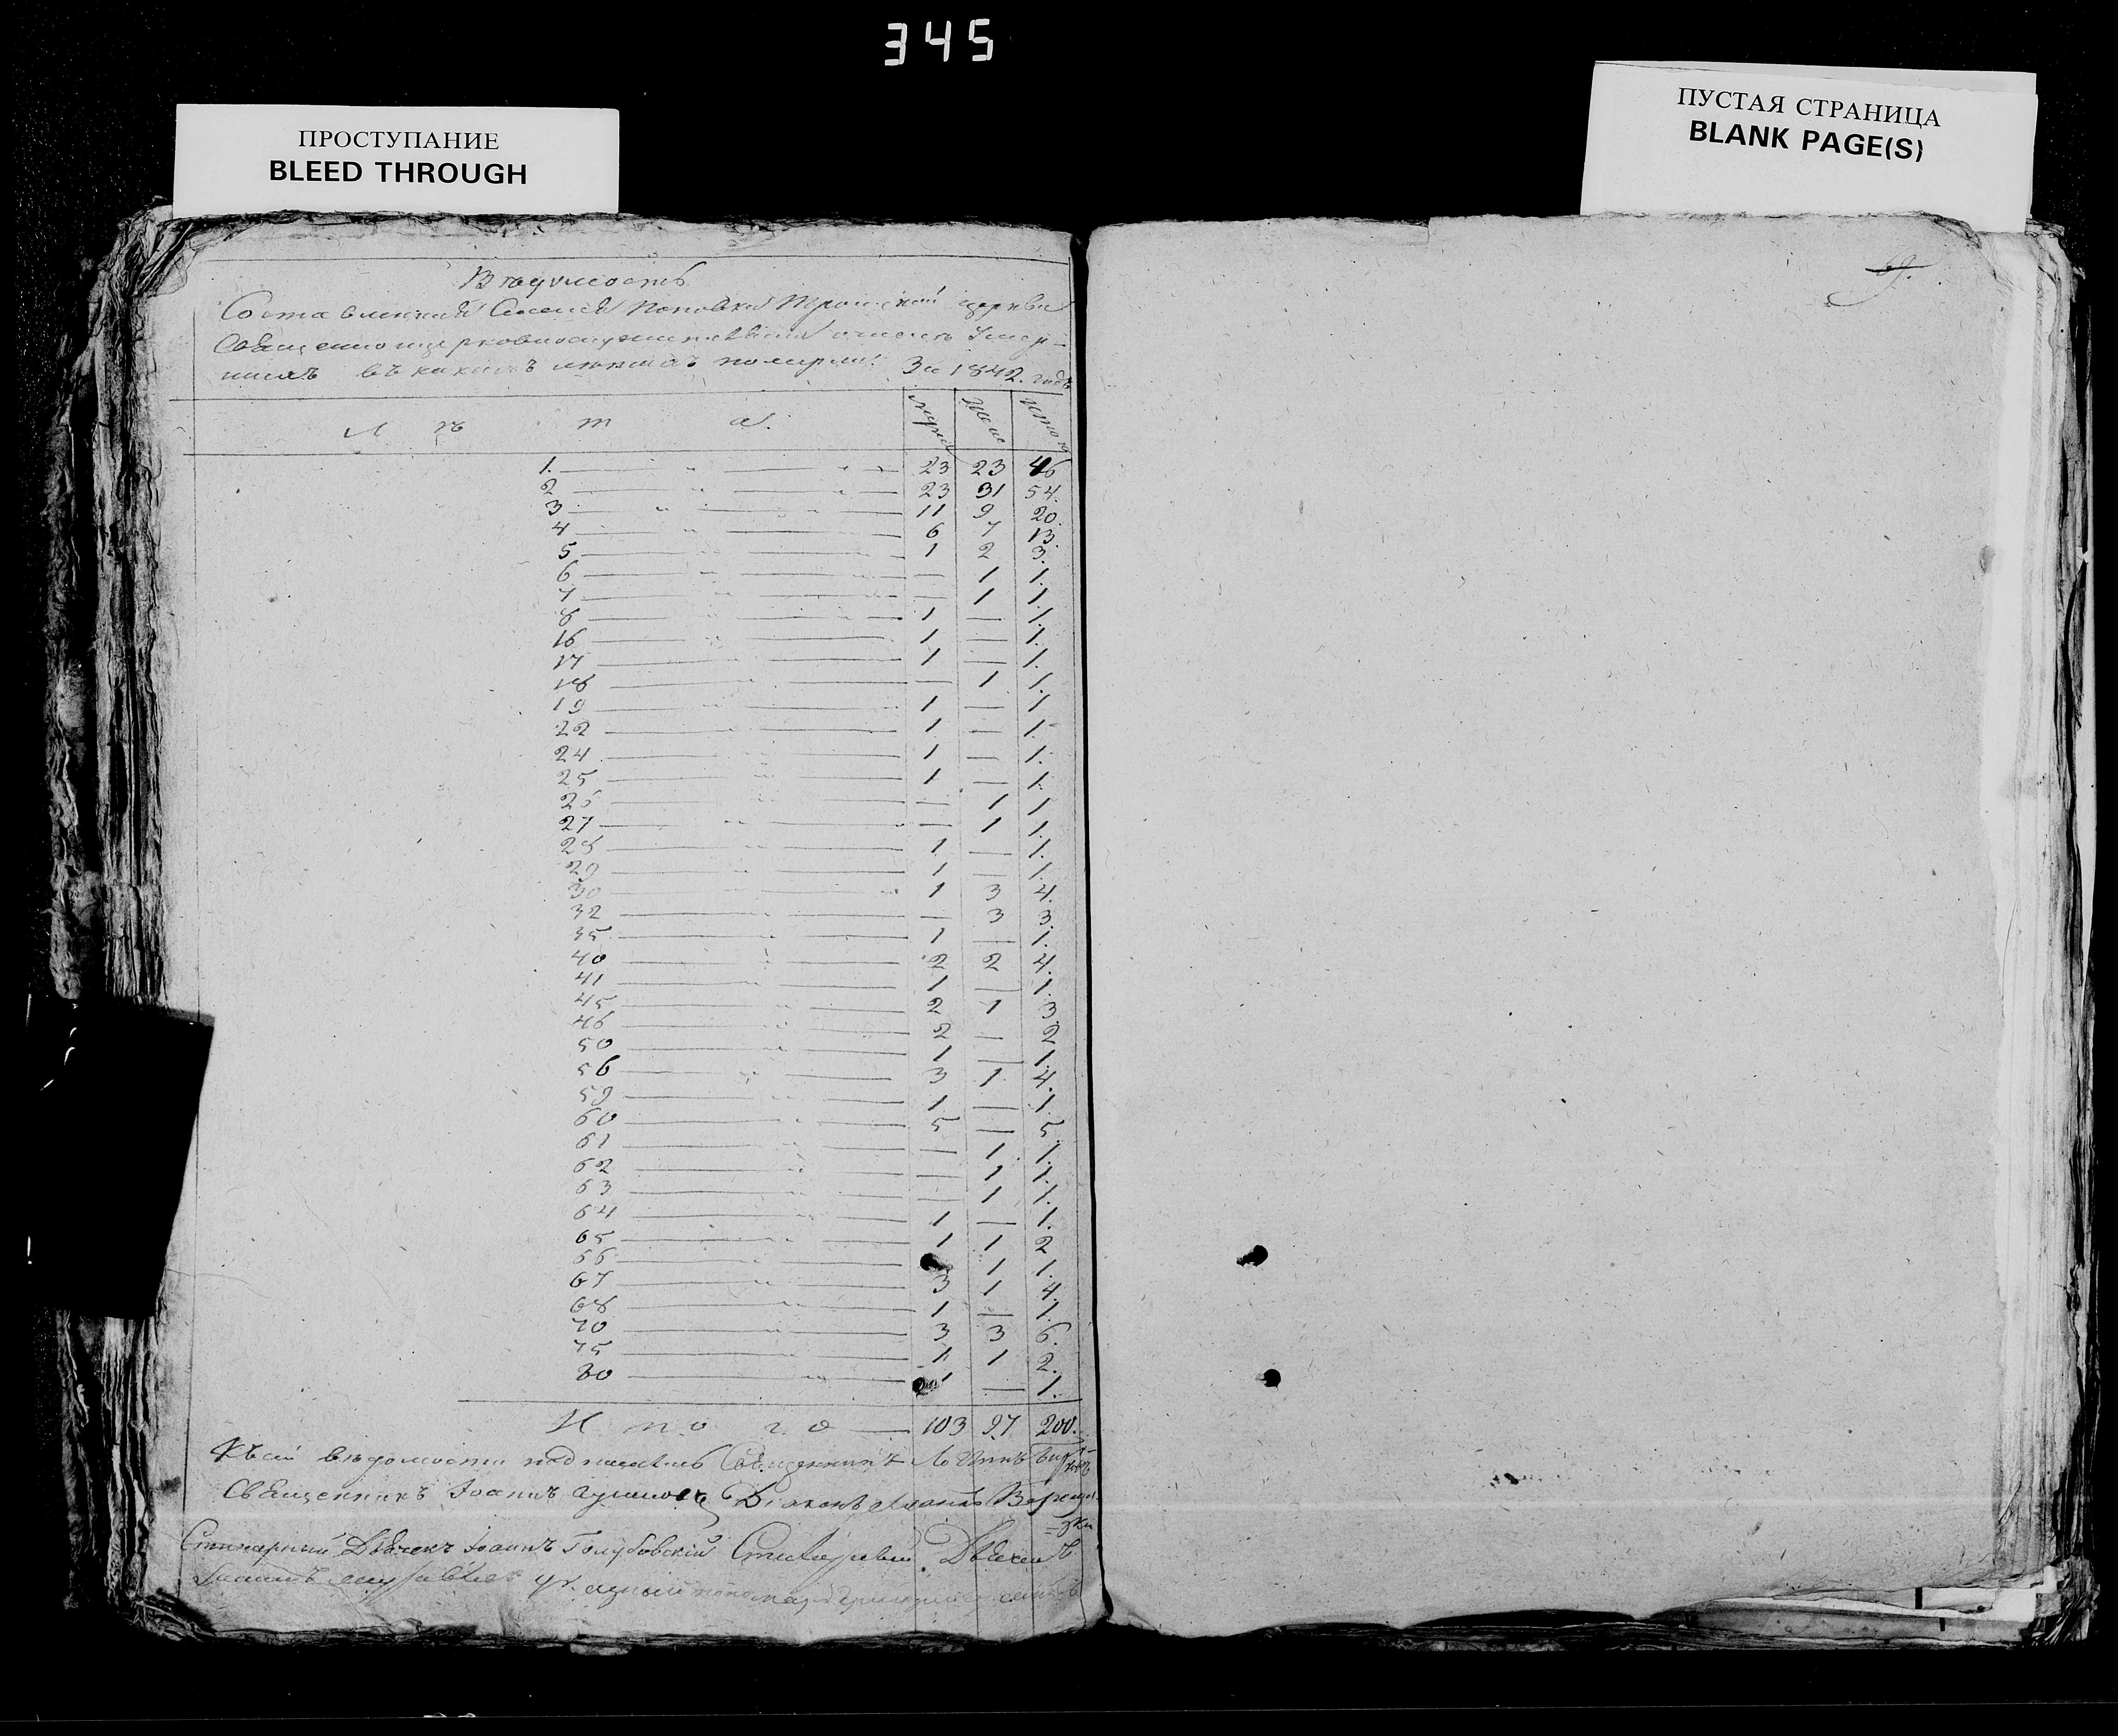 345
ПРОСТУПАНИЕ
BLEED THROUGH
ПУСТАЯ СТРАНИЦА
BLANK PAGE(S)
69.
Вѣдомость
Составленная Поповки Троицкой церкви
Священноцерковнослужителями о числѣ Умер-
шихъ въ какихъ лѣтахъ померли За 1842. годъ
Л ѣ т а.
1. 23 23 46
2 23 31 54.
3 11 9 20.
4 6 7 13.
5 1 2 3.
6 — 1 1.
7 — 1 1.
8 1 — 1.
16 1 — 1.
17 1 — 1.
18 — 1 1.
19 1 — 1
22 1 — 1.
24 1 — 1.
25 1 — 1.
26 — 1 1
27 — 1 1.
28 1 — 1.
29 1 — 1.
30 1 3 4.
32 — 3 3.
35 1 — 1.
40 2 2 4.
41 1 — 1.
45 2 1 3
46 2 — 2
50 1 — 1.
56 3 1 4.
59 1 — 1
60 5 — 5
61 — 1 1.
62 — 1 1.
63 — 1 1.
64 1 — 1.
65 1 1 2
66 1 1.
67 3 1 4.
68 1 — 1.
70 3 3 6.
75 1 1 2.
80 1 — 1.
И т о г о — 103 97 200.
Къ сей вѣдомости подписались Священникъ
Священникъ Іоаннъ Діаконъ
Стихарный Дьячекъ Іоаннъ Голубовскій Стихарный Дьячекъ
пономарь